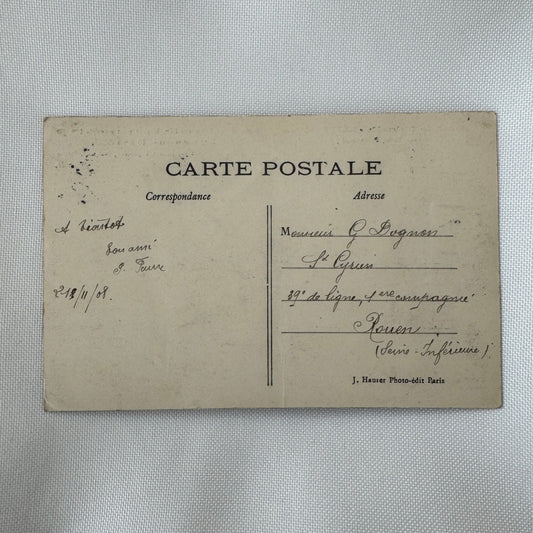 CARTE POSTALE
Correspondance
Adresse
A bientôt
Ton ami
Monsieur G Dognon
St Cyrien
39e de ligne, 1ere compagnie
Rouen
(Seine-Inférieure)
J. Hauser Photo-édit Paris